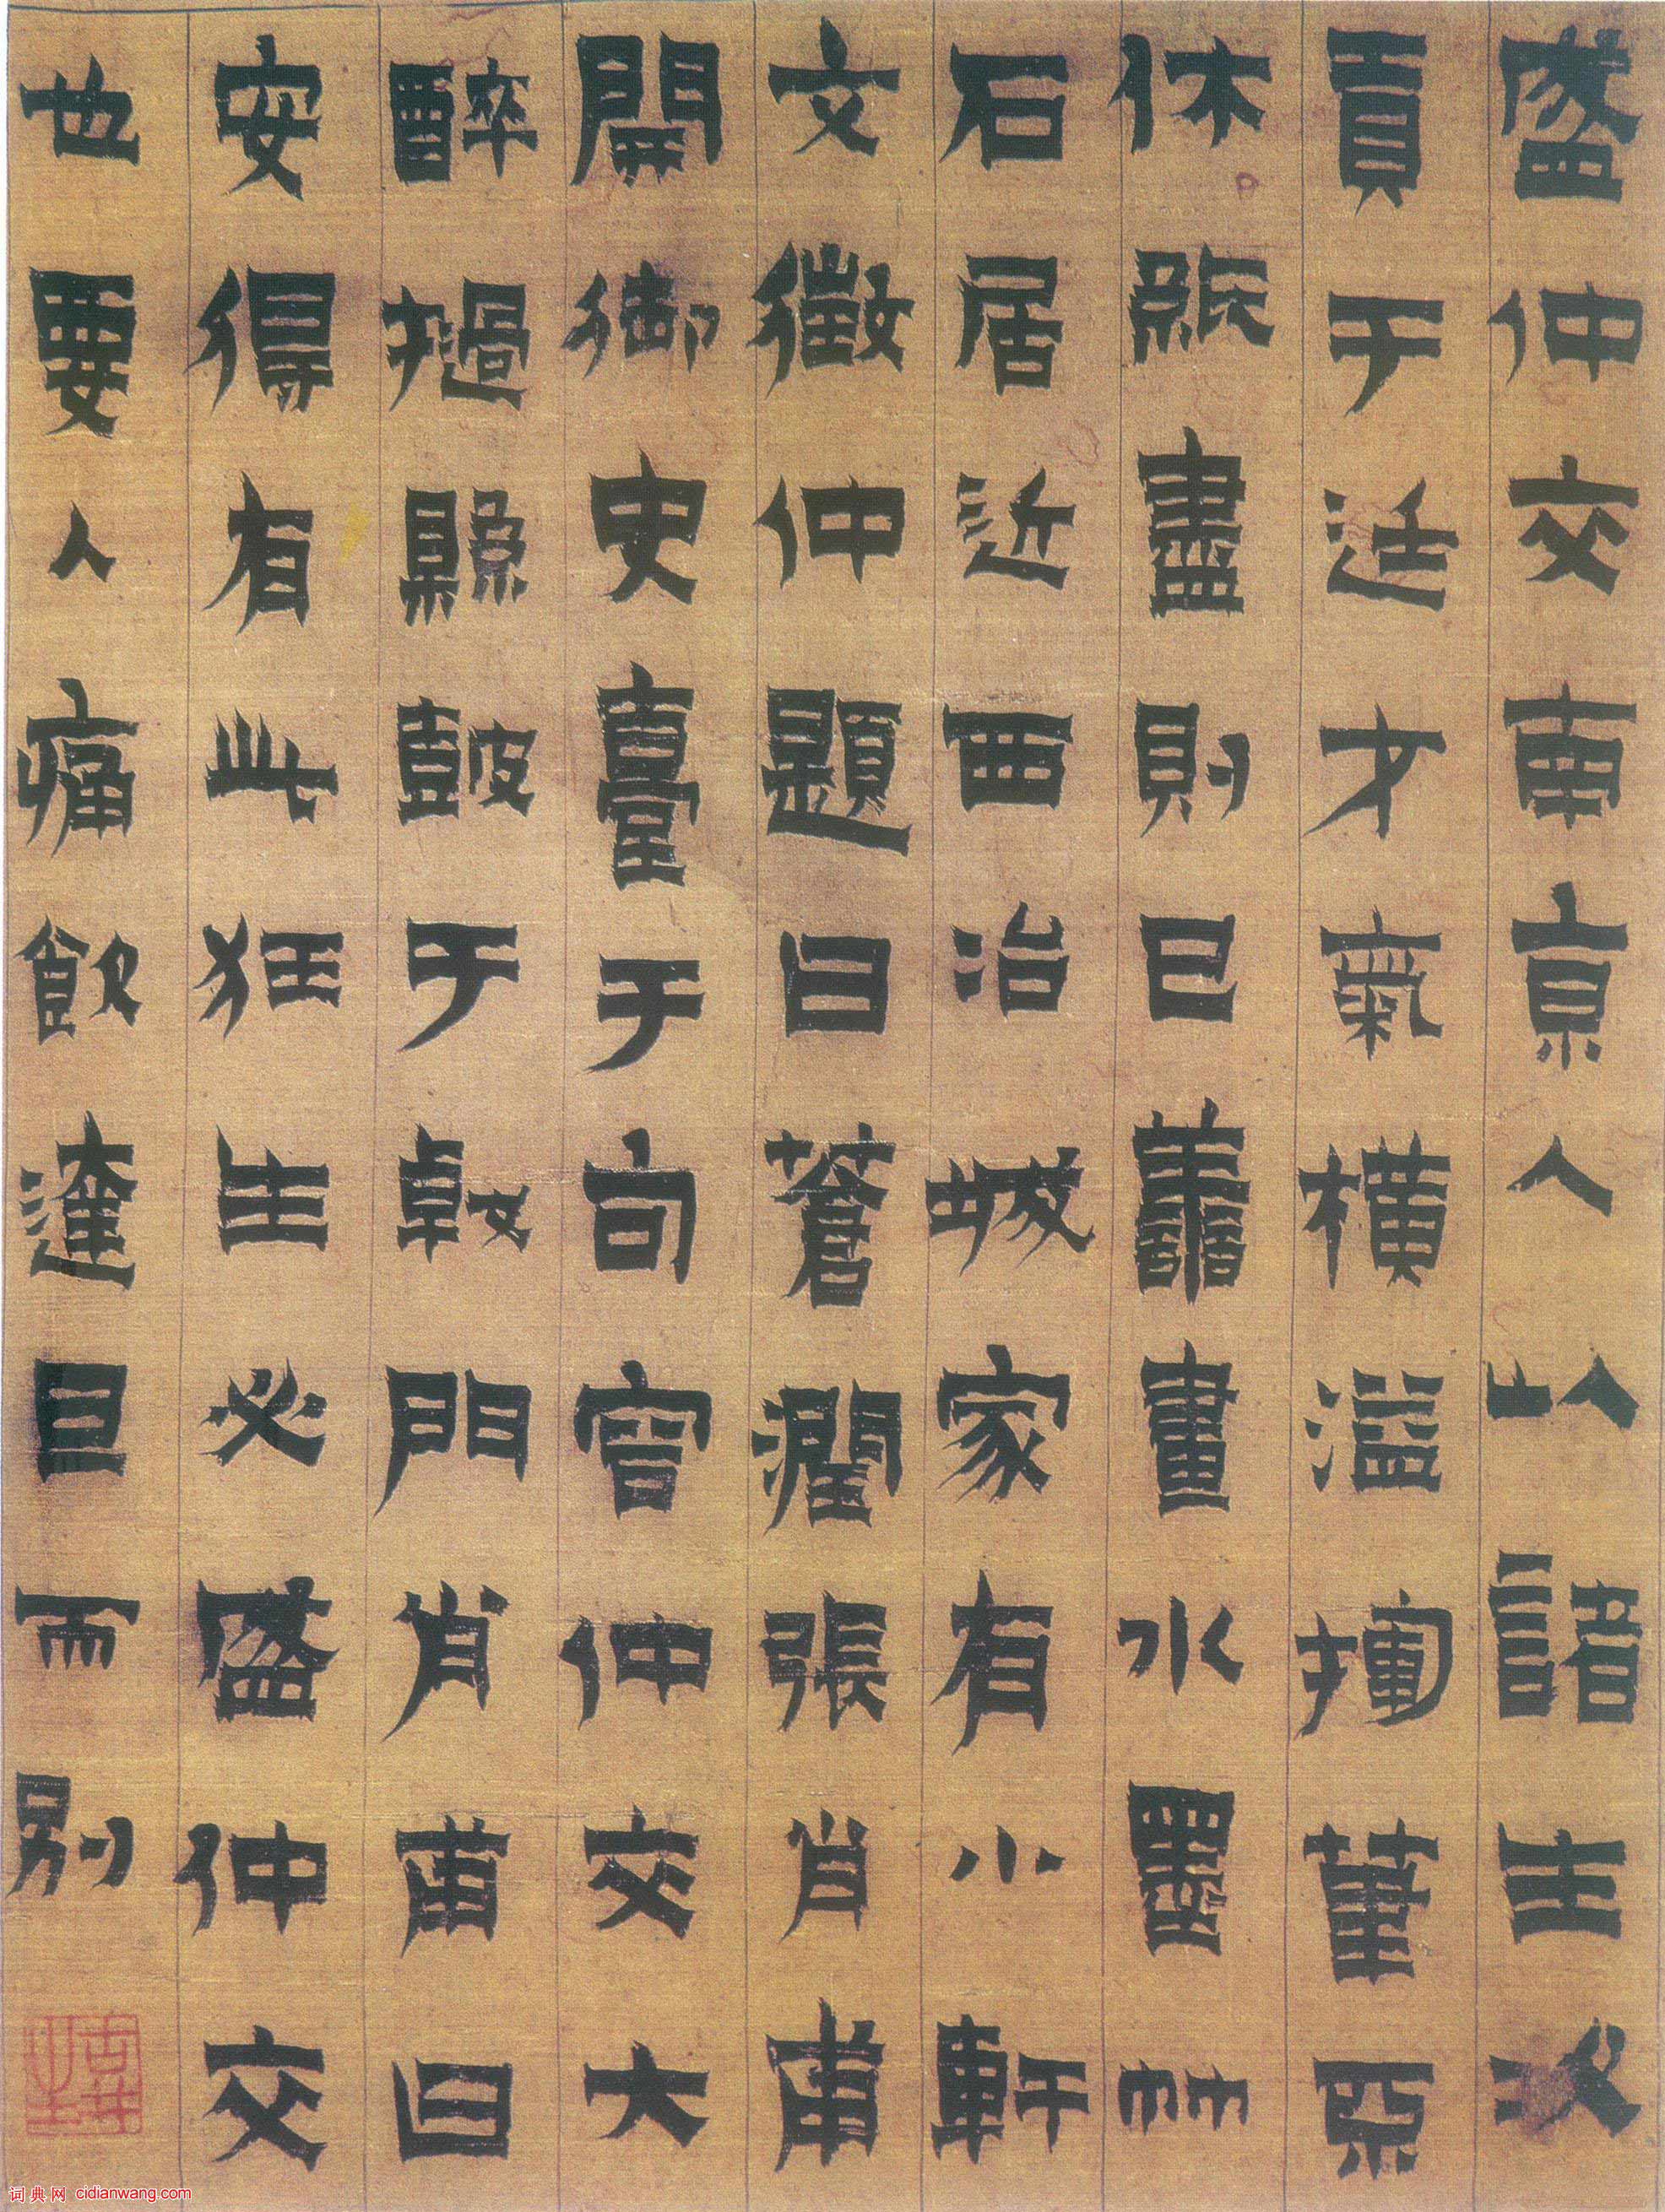 盛仲交南京人以諸生次
貢于廷才氣橫溢揮筆不
休紙盡則已譱畫水墨竹
石居近西冶城家有小軒
文徵仲題曰蒼潤張肖甫
開御史臺于句容仲交大
醉撾縣皷于戟門肖甫曰
安得有此狂生必盛仲交
也要人痛飲達旦而別
词典网 cidianwang.com